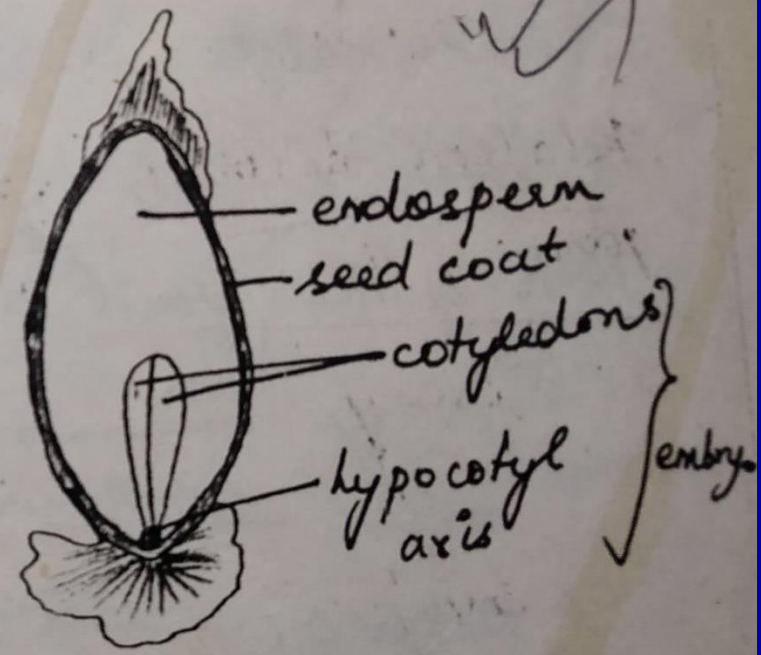 endosperm
seed coat
cotyledons
hypocotyl
axis
embryo